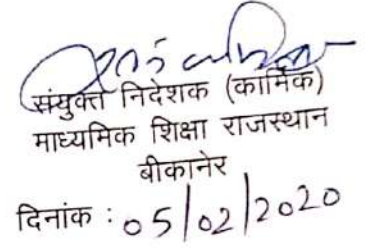 संयुक्त निदेशक (कार्मिक)
माध्यमिक शिक्षा राजस्थान
बीकानेर
दिनांक : 05/02/2020